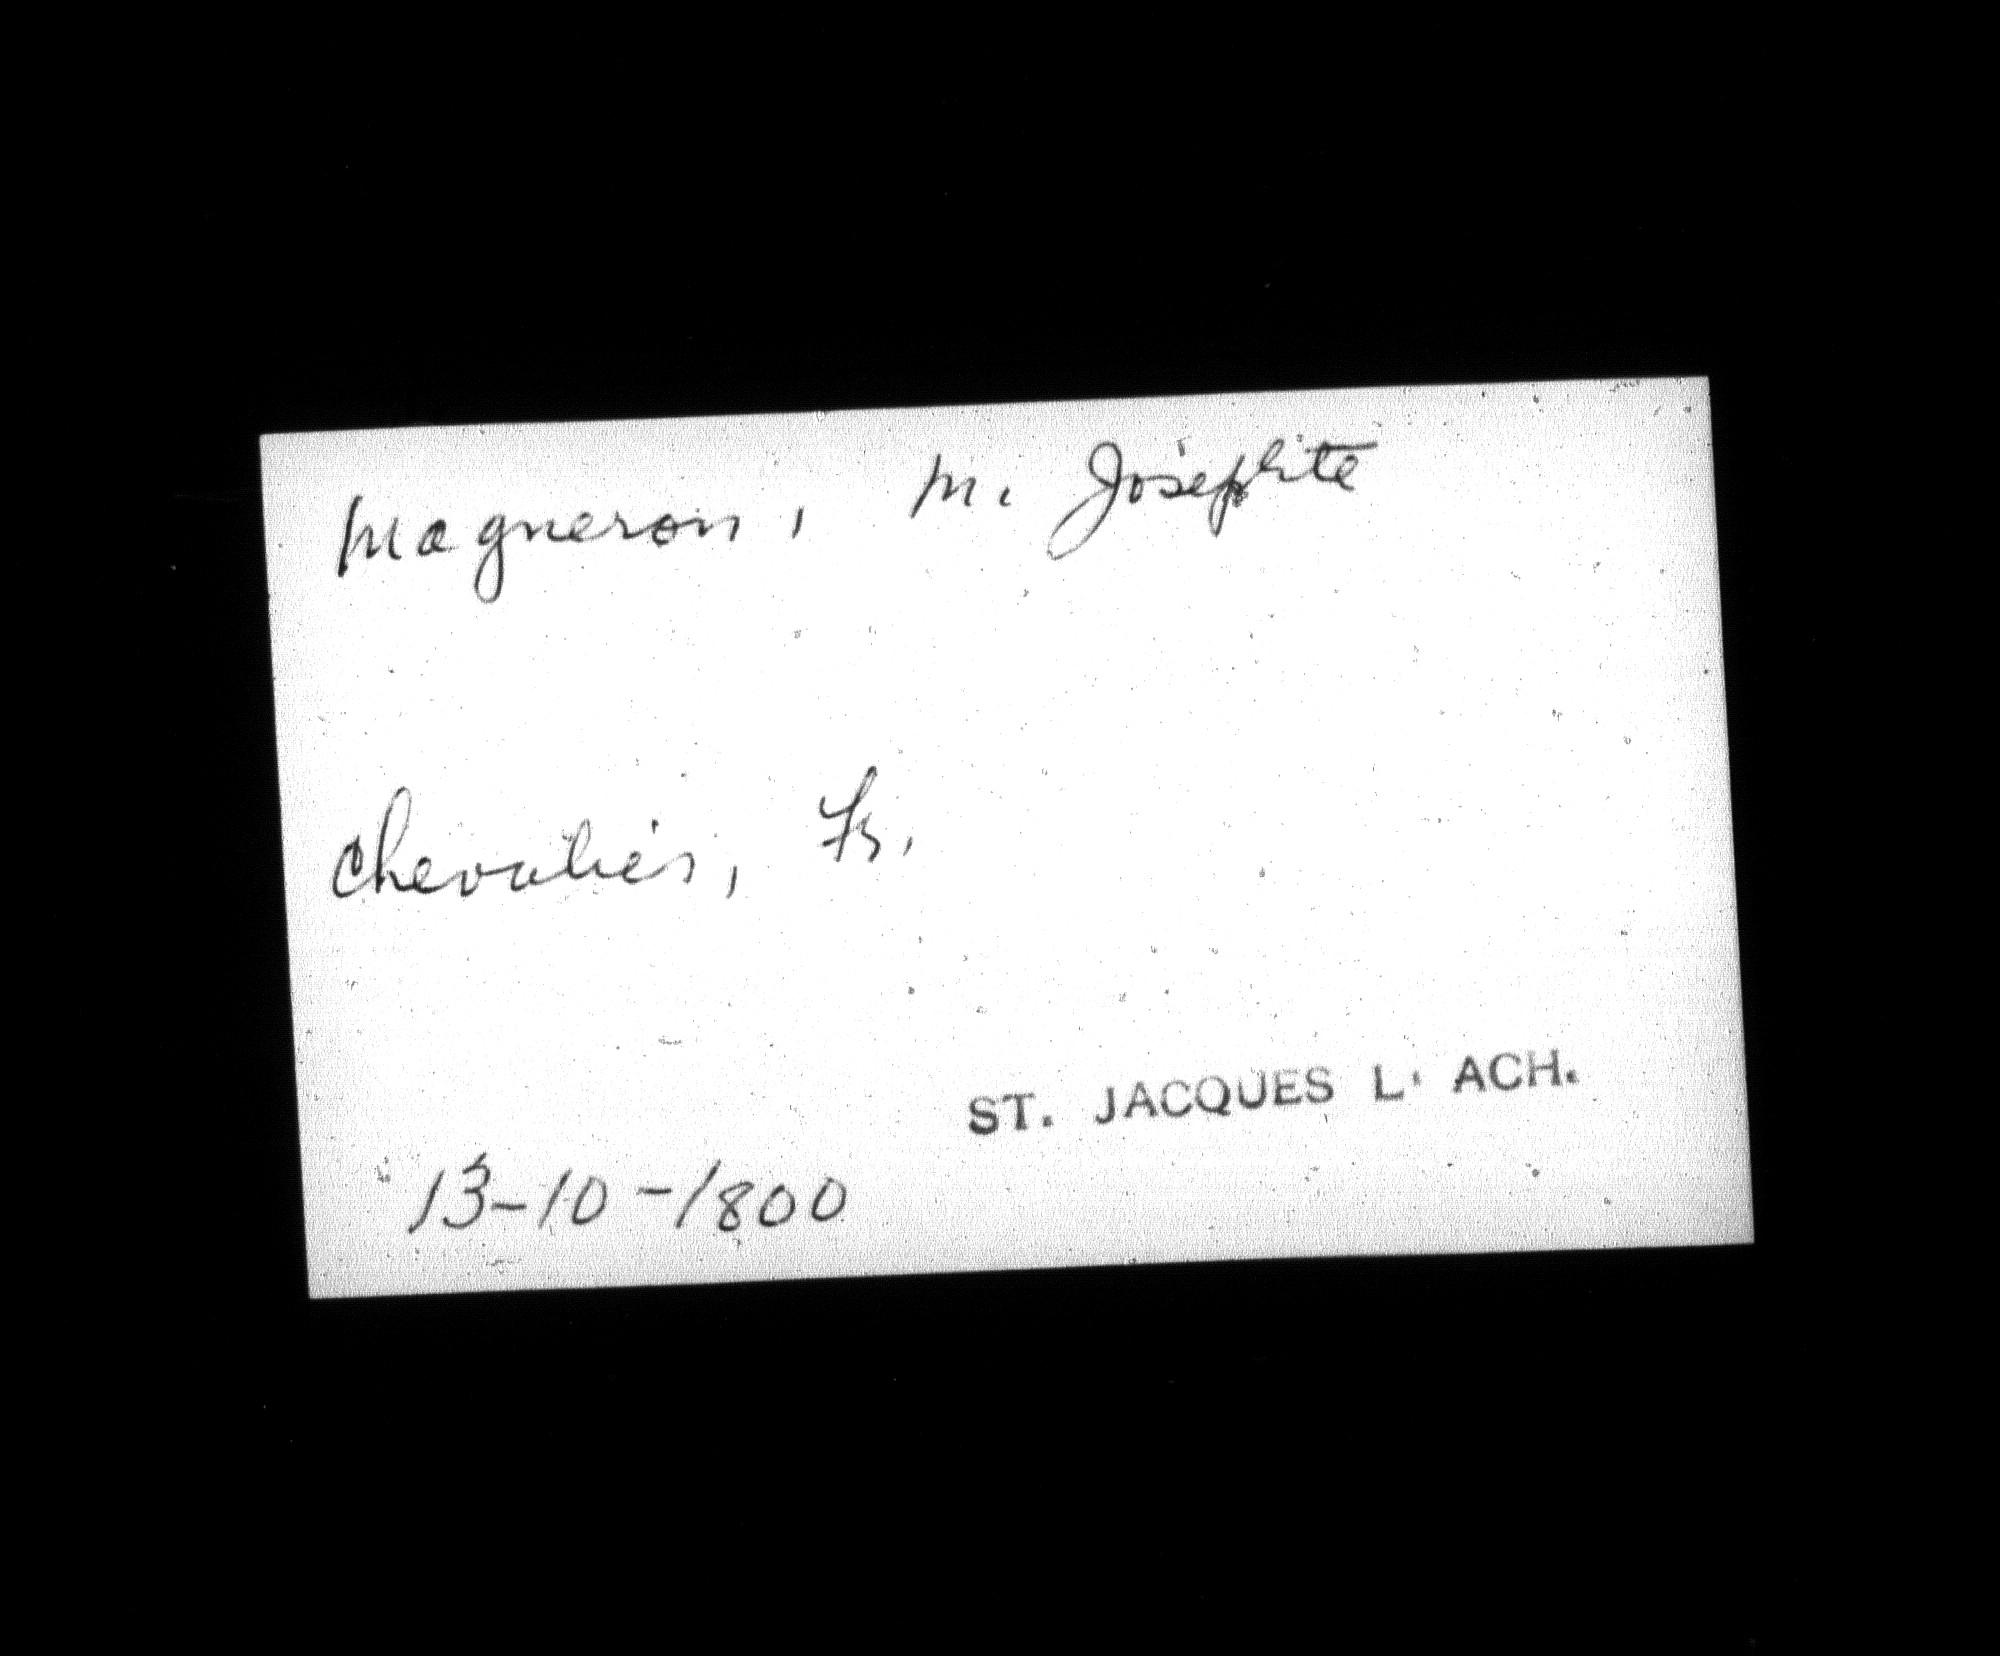 Magneron, M. Josephte
Chevalier, Fr.
ST. JACQUES L' ACH.
13-10-1800